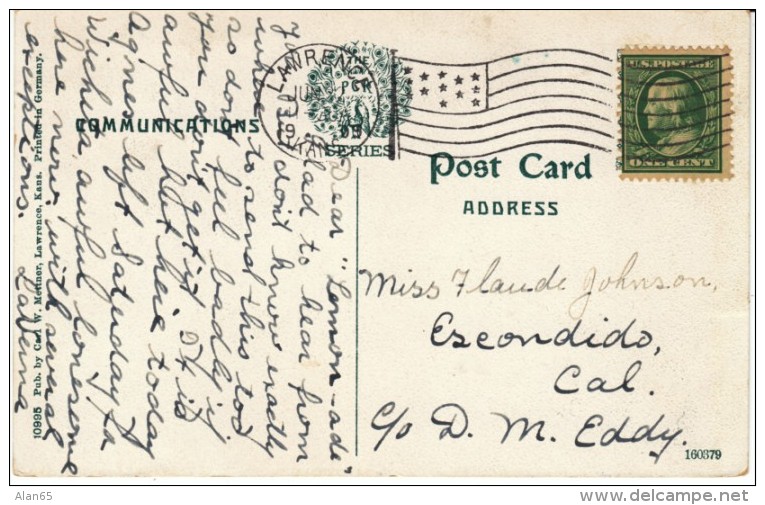 COMMUNICATIONS
THE
PCK
SERIES
LAWRENCE
JUN
KAN
U.S. POSTAGE
ONE CENT
Post Card
ADDRESS
Miss Flaude Johnson,
Escondido,
Cal.
c/o D. M. Eddy.
160379
Dear "Lemon-ade"
glad to hear from
you. I don't know exactly
where to send this to
so don't ful badly if
you don't get it. It is
awful hot here today
Agnes left Saturday for
Wichita awful lonesome
here now, with several
exceptions.
LaVerna
10995 Pub. by Carl W. Mettner, Lawrence, Kans. Printed in Germany.
Alan65
http://www.delcampe.net